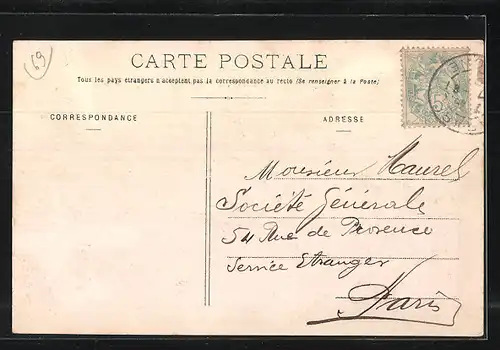 69
CARTE POSTALE
Tous les pays étrangers n'acceptent pas la correspondance au recto (Se renseigner à la Poste)
CORRESPONDANCE
ADRESSE
Monsieur Maurel
Société Générale
54 Rue de Provence
Service Etranger
Paris